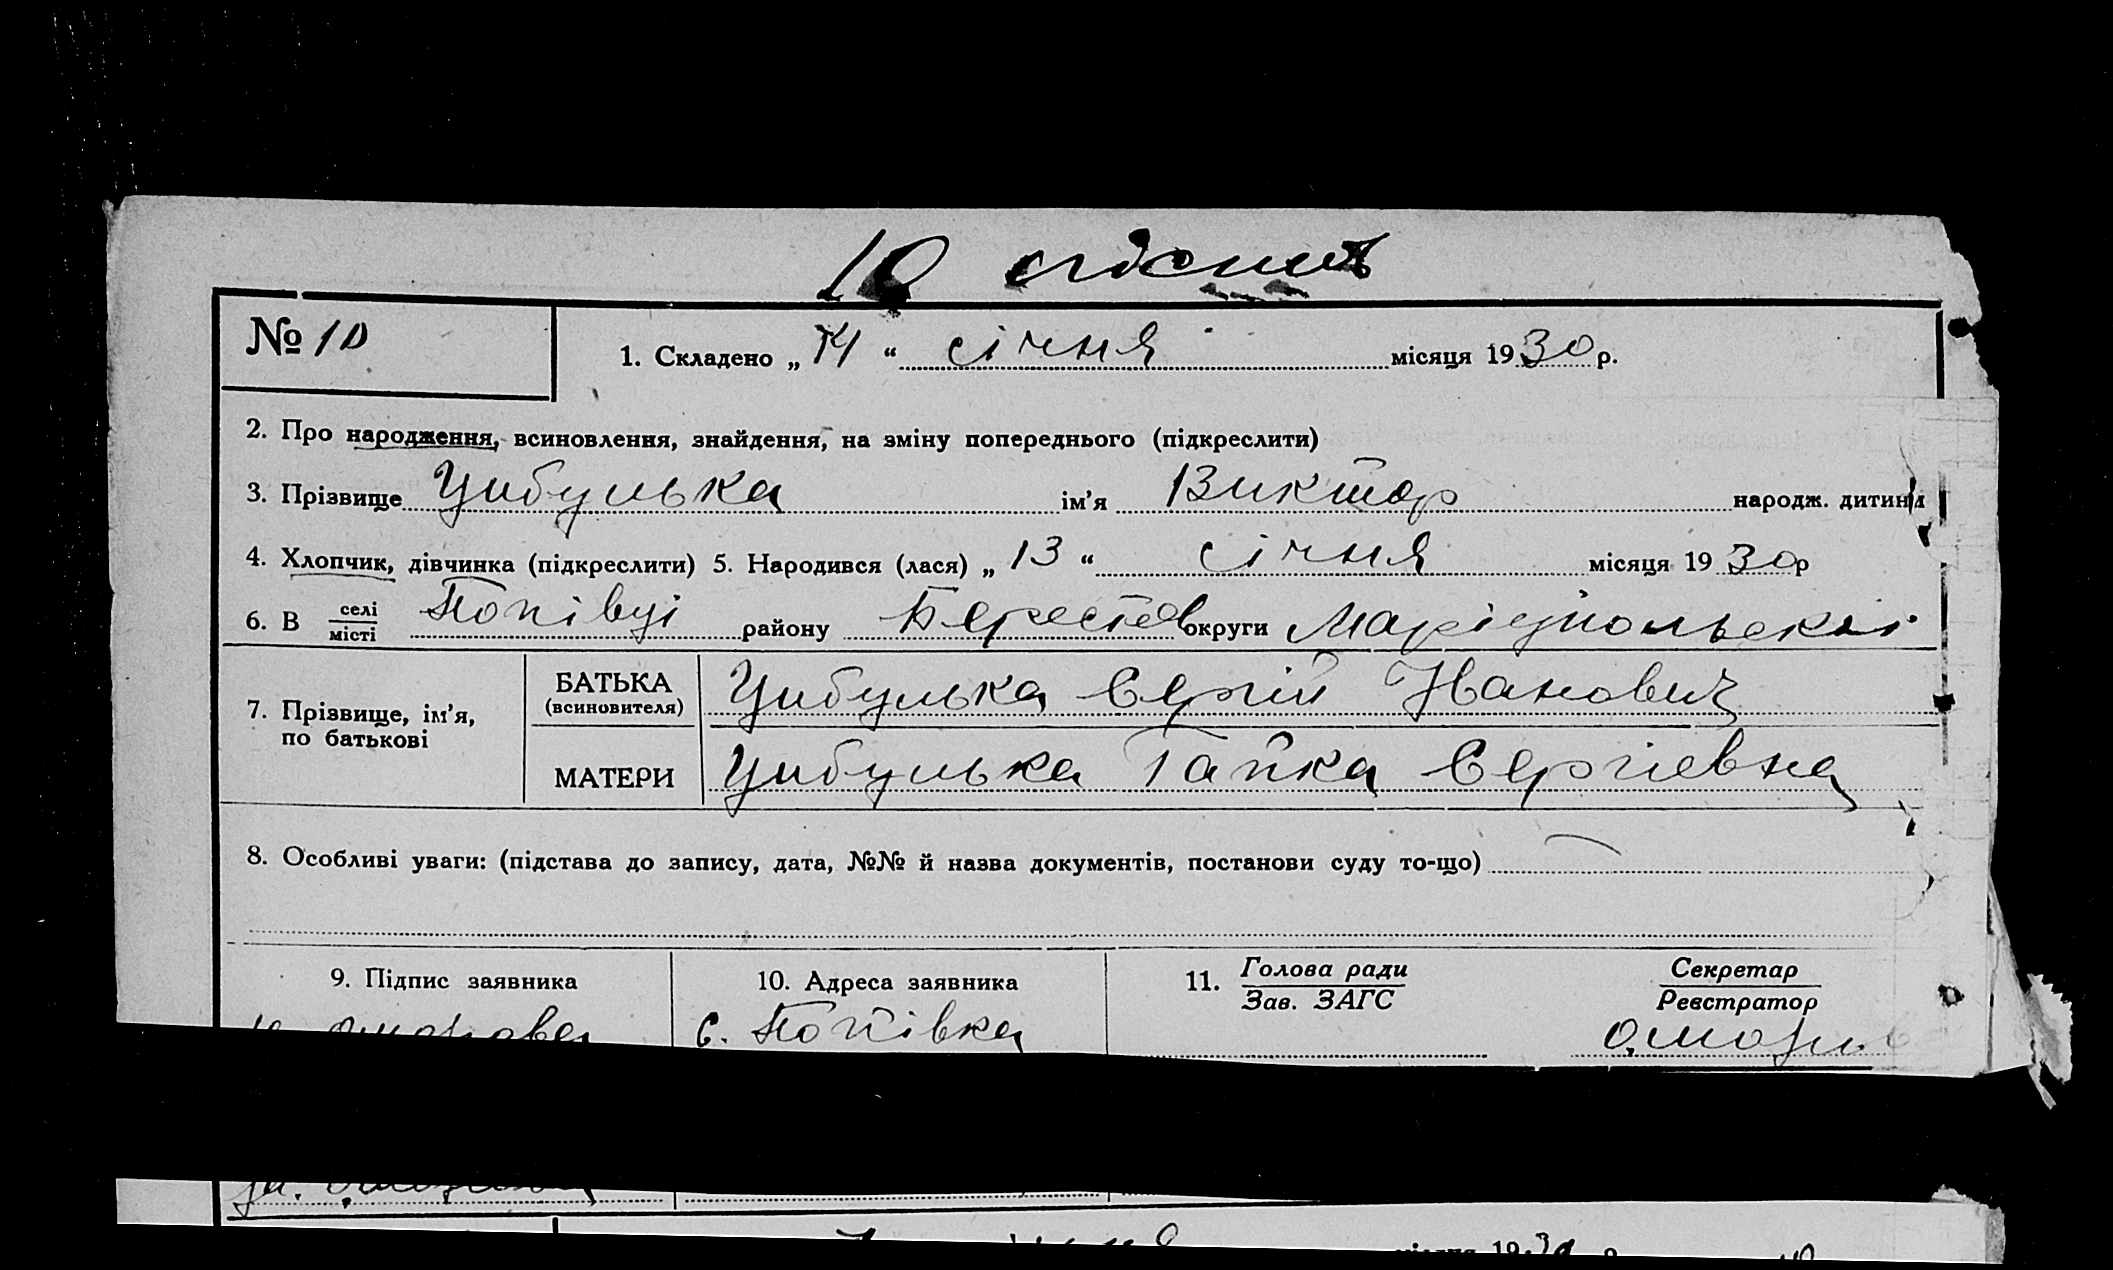 10
№ 10
1. Складено „ 14 “ січня місяця 1930 р.
2. Про народження, всиновлення, знайдення, на зміну попереднього (підкреслити)
3. Прізвище Цибулька ім’я Виктор народж. дитини
4. Хлопчик, дівчинка (підкреслити) 5. Народився (лася) „ 13 “ січня місяця 1930 р
6. В селі
місті Попівці району Берестов округи Маріупольскіі
7. Прізвище, ім’я,
по батькові
БАТЬКА
(всиновителя)
Цибулька Сергій Иванович
МАТЕРИ
Цибулька Гапка Сергіевна
8. Особливі уваги: (підстава до запису, дата, №№ й назва документів, постанови суду то-що)
9. Підпис заявника
10. Адреса заявника
с. Попівка
11. Голова ради
Зав. ЗАГС
Секретар
Реєстратор
місяця 1930 р